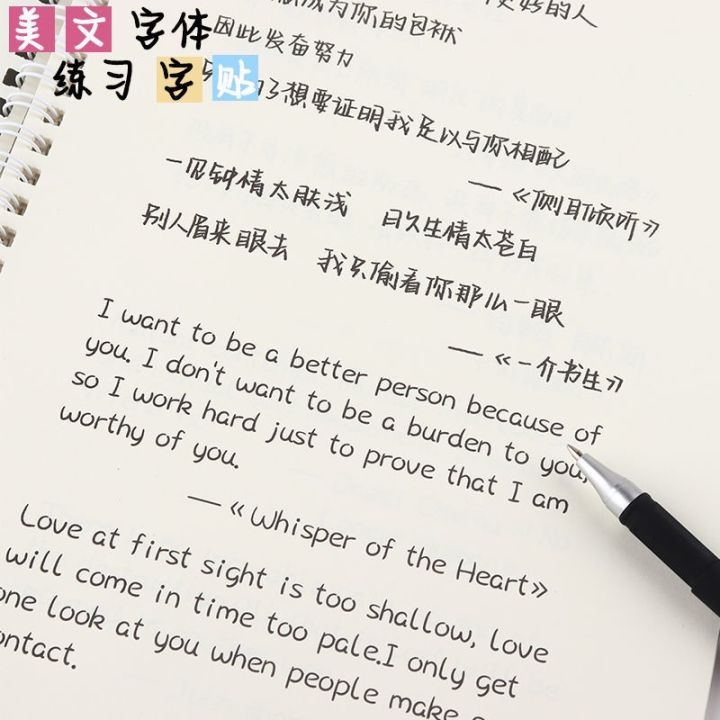 美文字体
练习字贴
好的人
成为你的包袱
因此发奋努力
了想要证明我足以与你相配
—《侧耳倾听》
一见钟情太肤浅 日久生情太苍白
别人眉来眼去 我只偷看你那么一眼
—《一介书生》
I want to be a better person because of
you. I don't want to be a burden to you,
so I work hard just to prove that I am
worthy of you.
—《Whisper of the Heart》
Love at first sight is too shallow, love
will come in time too pale.I only get
one look at you when people make
ontact.